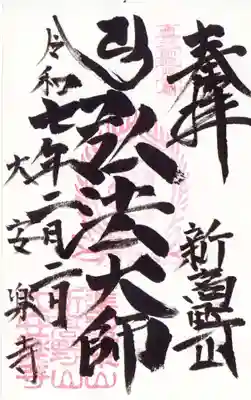 奉拝
新高野山
弘法大師
令和七年二月二日
大安楽寺